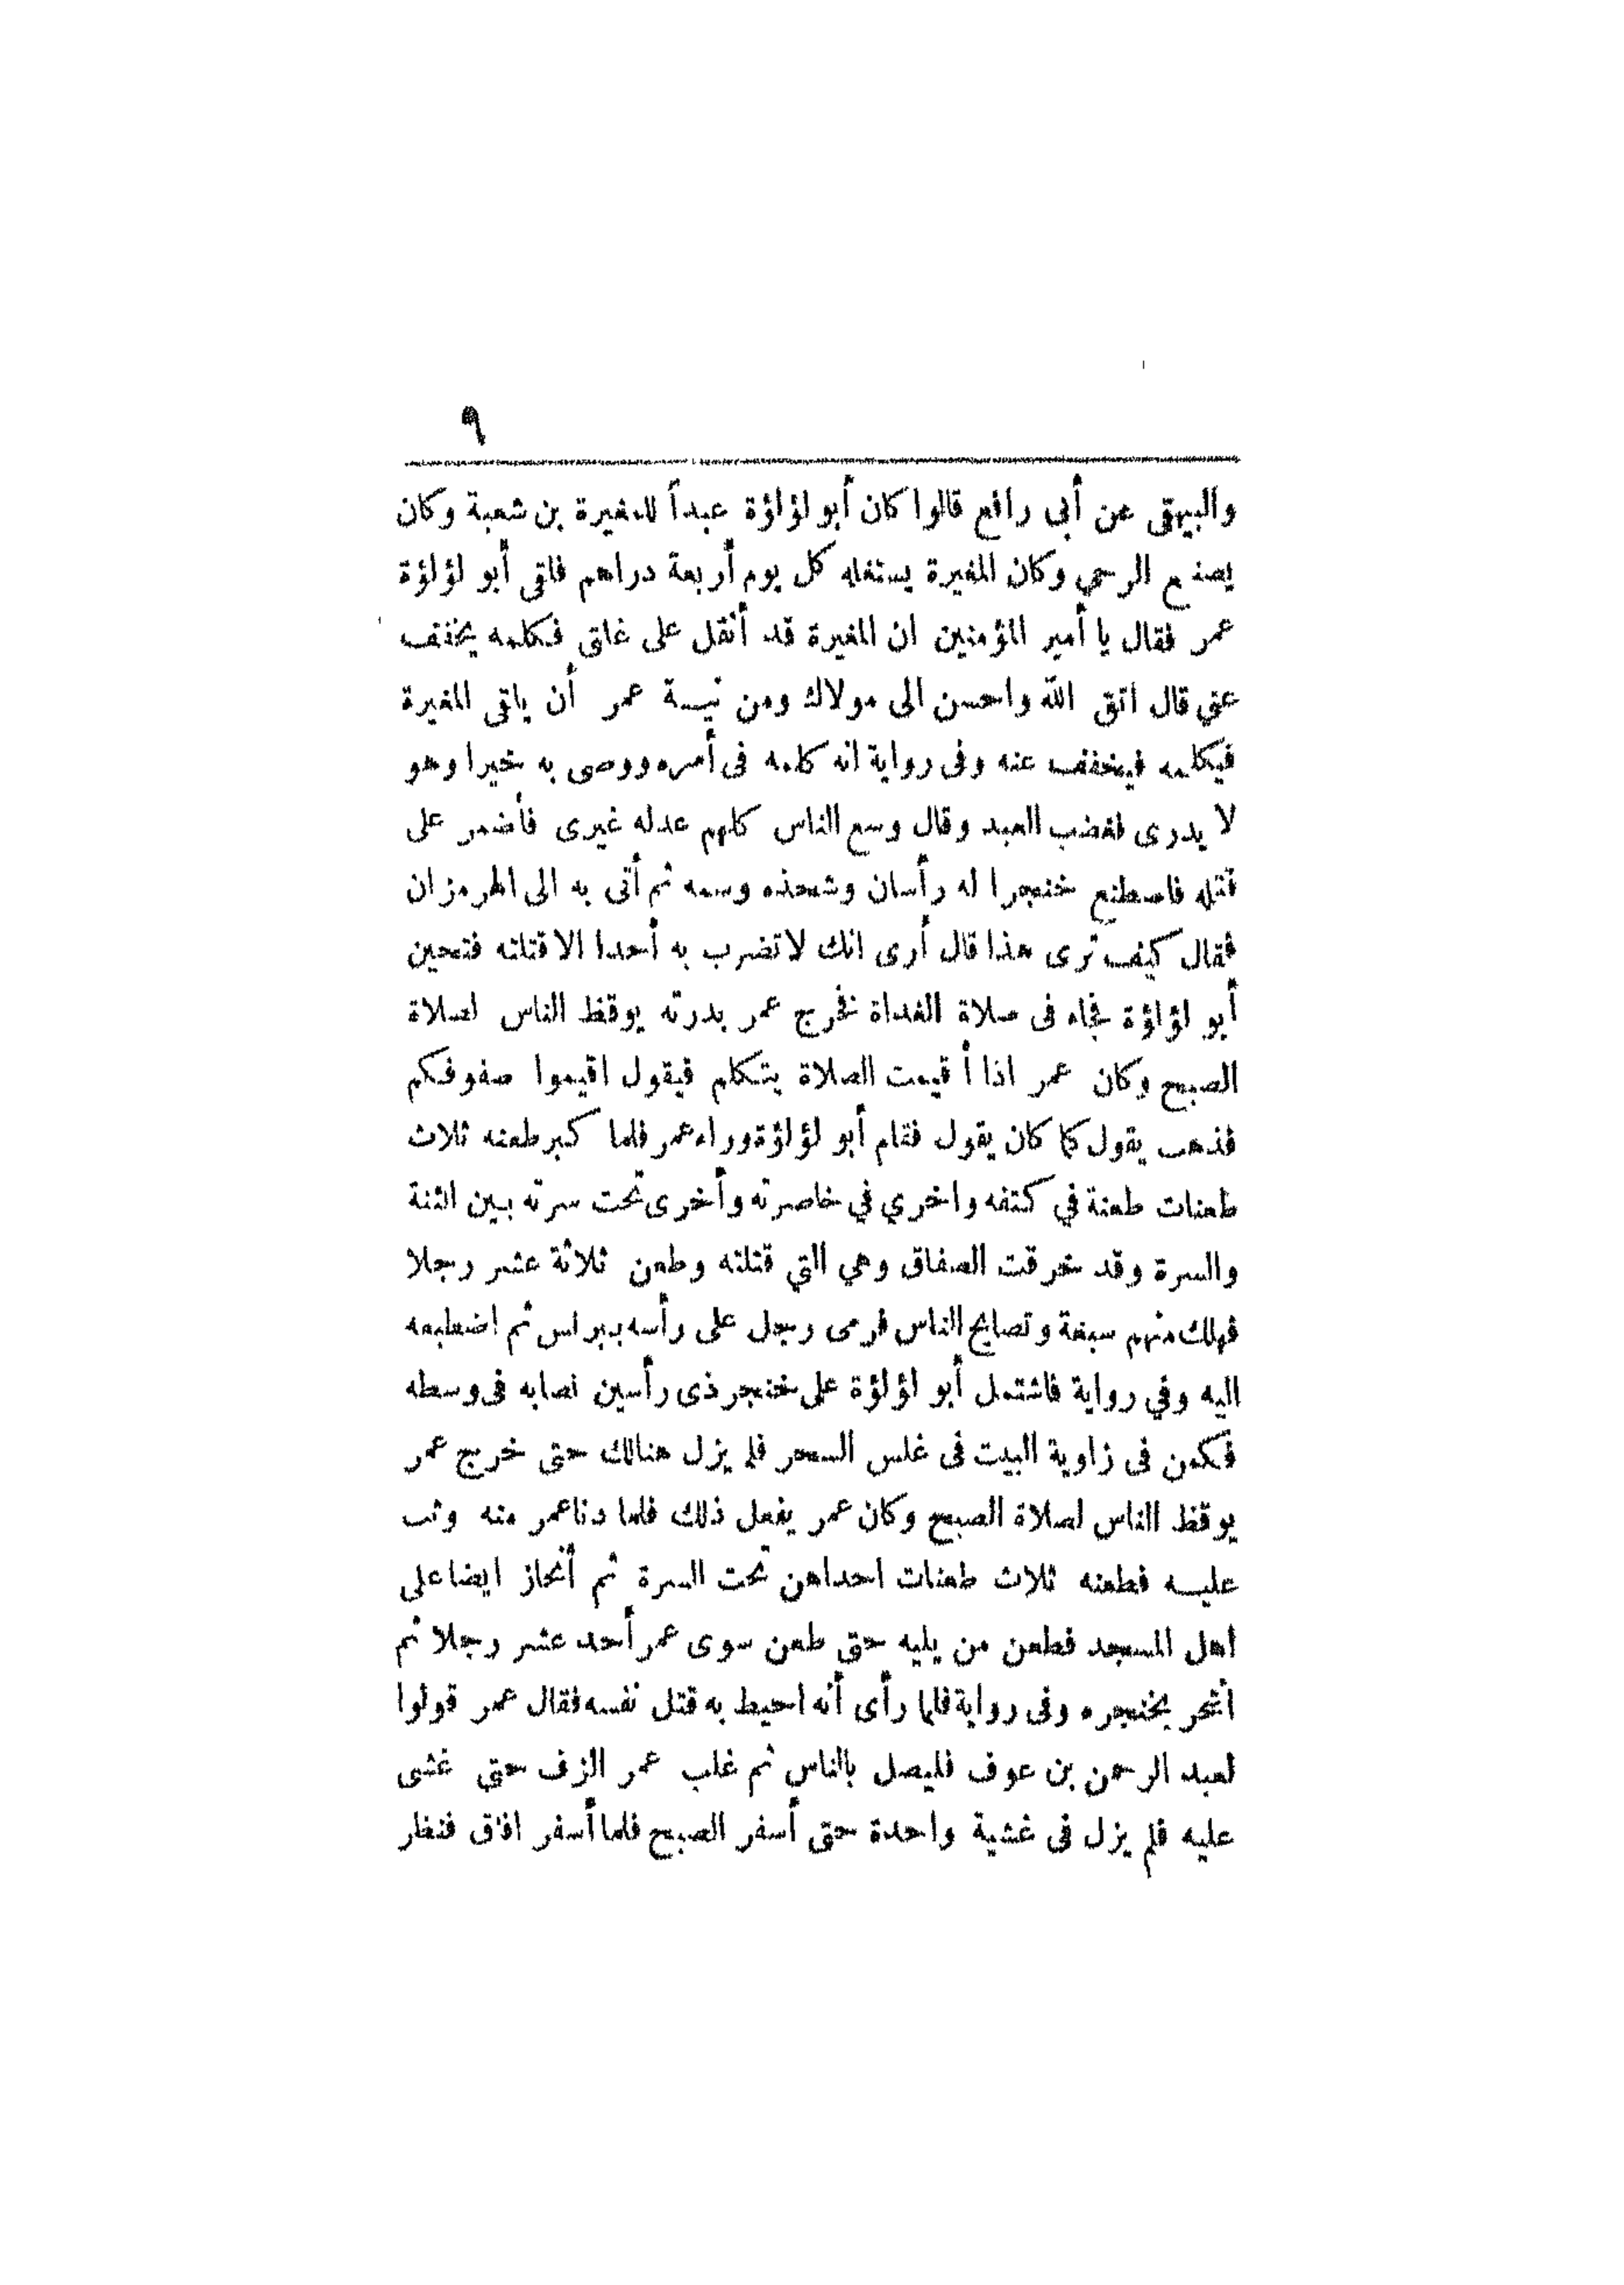 ٩
والبيهقى عن أبى رافع قالوا كان أبو لؤلؤة عبداً للمغيرة بن شعبة وكان
يصنع الرحى وكان المغيرة يستغله كل يوم أربعة دراهم فلقى أبو لؤلؤة
عمر فقال يا أمير المؤمنين ان المغيرة قد أثقل على غلتى فكلمه يخفف
عنى قال اتق الله واحسن الى مولاك ومن نيــة عمر أن يلقى المغيرة
فيكلمه فيخفف عنه وفى رواية انه كلمه فى أمره ووصى به خيرا وهو
لا يدرى فغضب العبد وقال وسع الناس كلهم عدله غيرى فأضمر على
قتله فاصطنع خنجرا له رأسان وشحذه وسمه ثم أتى به الى الهرمزان
فقال كيف ترى هذا قال أرى انك لا تضرب به أحدا الا قتلته فتحين
أبو لؤلؤة فجاء فى صلاة الغداة فخرج عمر بدرته يوقظ الناس لصلاة
الصبح وكان عمر اذا أقيمت الصلاة يتكلم فيقول اقيموا صفوفكم
فذهب يقول كما كان يقول فقام أبو لؤلؤة وراء عمر فلما كبر طعنه ثلاث
طعنات طعنة في كتفه واخري في خاصرته وأخرى تحت سرته بين الثنة
والسرة وقد خرقت الصفاق وهي التي قتلته وطعن ثلاثة عشر رجلا
فهلك منهم سبعة وتصايح الناس فرمى رجل على رأسه ببرنس ثم اضطبعه
اليه وفي رواية فاشتمل أبو لؤلؤة على خنجر ذى رأسين نصابه فى وسطه
فكمن فى زاوية البيت فى غلس السحر فلم يزل هنالك حتى خرج عمر
يوقظ الناس لصلاة الصبح وكان عمر يفعل ذلك فلما دنا عمر منه وثب
عليــه فطعنه ثلاث طعنات احداهن تحت السرة ثم أنحاز ايضا على
اهل المسجد فطعن من يليه حتى طعن سوى عمر أحد عشر رجلا ثم
أنتحر بخنجره وفى رواية فلما رأى أنه احيط به قتل نفسه فقال عمر قولوا
لعبد الرحمن بن عوف فليصل بالناس ثم غلب عمر النزف حتى غشى
عليه فلم يزل فى غشية واحدة حتى أسفر الصبح فلما أسفر افاق فنظر